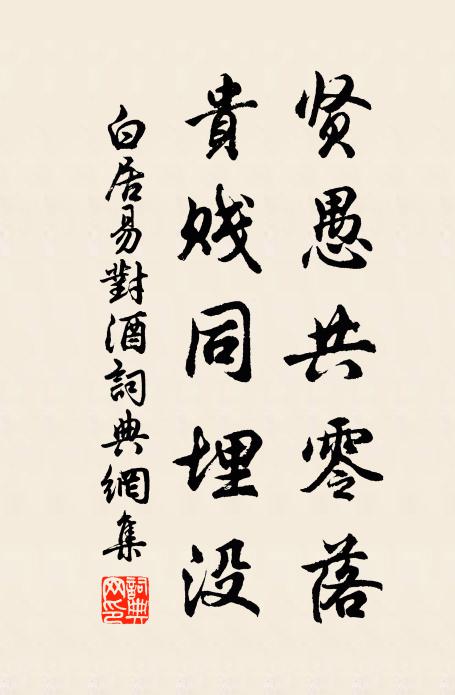 贤愚共零落
貴贱同埋没
白居易對酒詞典網集
詞典
网印